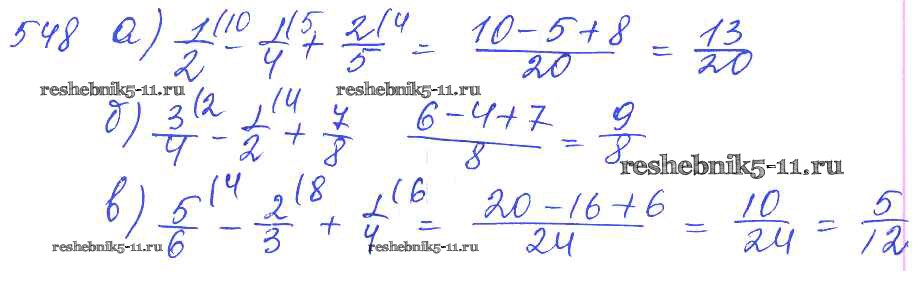 548 а) 1/2 (10 - 1/4 (5 + 2/5 (4 = (10 - 5 + 8)/20 = 13/20
reshebnik5-11.ru reshebnik5-11.ru
б) 3/4 (2 - 1/2 (4 + 7/8 (6 - 4 + 7)/8 = 9/8
reshebnik5-11.ru
в) 5/6 (4 - 2/3 (8 + 1/4 (6 = (20 - 16 + 6)/24 = 10/24 = 5/12
reshebnik5-11.ru reshebnik5-11.ru